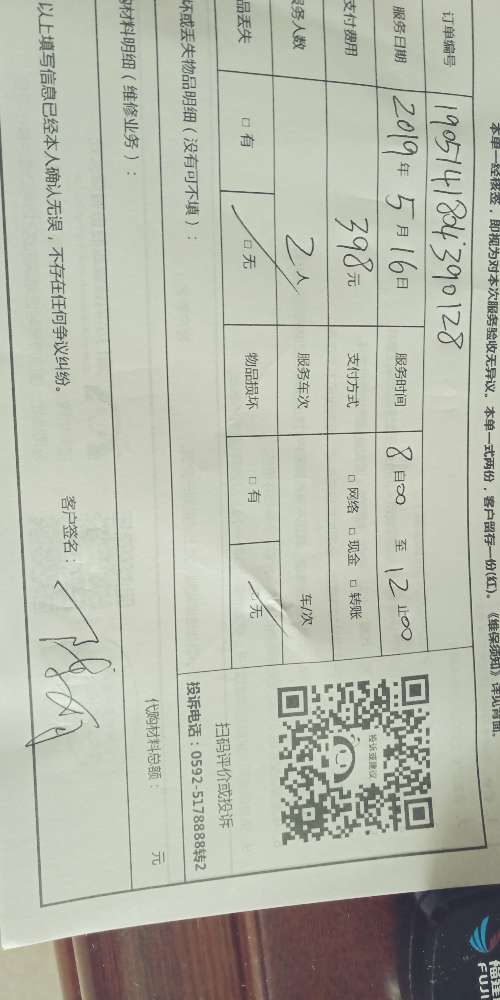 本单一经核签，即视为对本次服务验收无异议。本单一式两份，客户留存一份(红)。《维保须知》详见背面。
订单编号 1905141804390128
服务日期 2019年5月16日 服务时间 8自00 至 12止00
支付费用 398元 支付方式 □网络 □现金 □转账
服务人数 2人 服务车次 车/次
品丢失 □有 □无 物品损坏 □有 □无
坏或丢失物品明细（没有可不填）：
材料明细（维修业务）：
代购材料总额： 元
以上填写信息已经本人确认无误，不存在任何争议纠纷。 客户签名：
投诉或建议
扫码评价或投诉
投诉电话：0592-5178888转2
FUJI